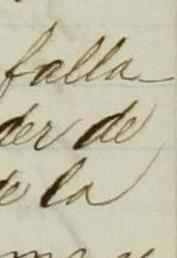 falla
der de
de la